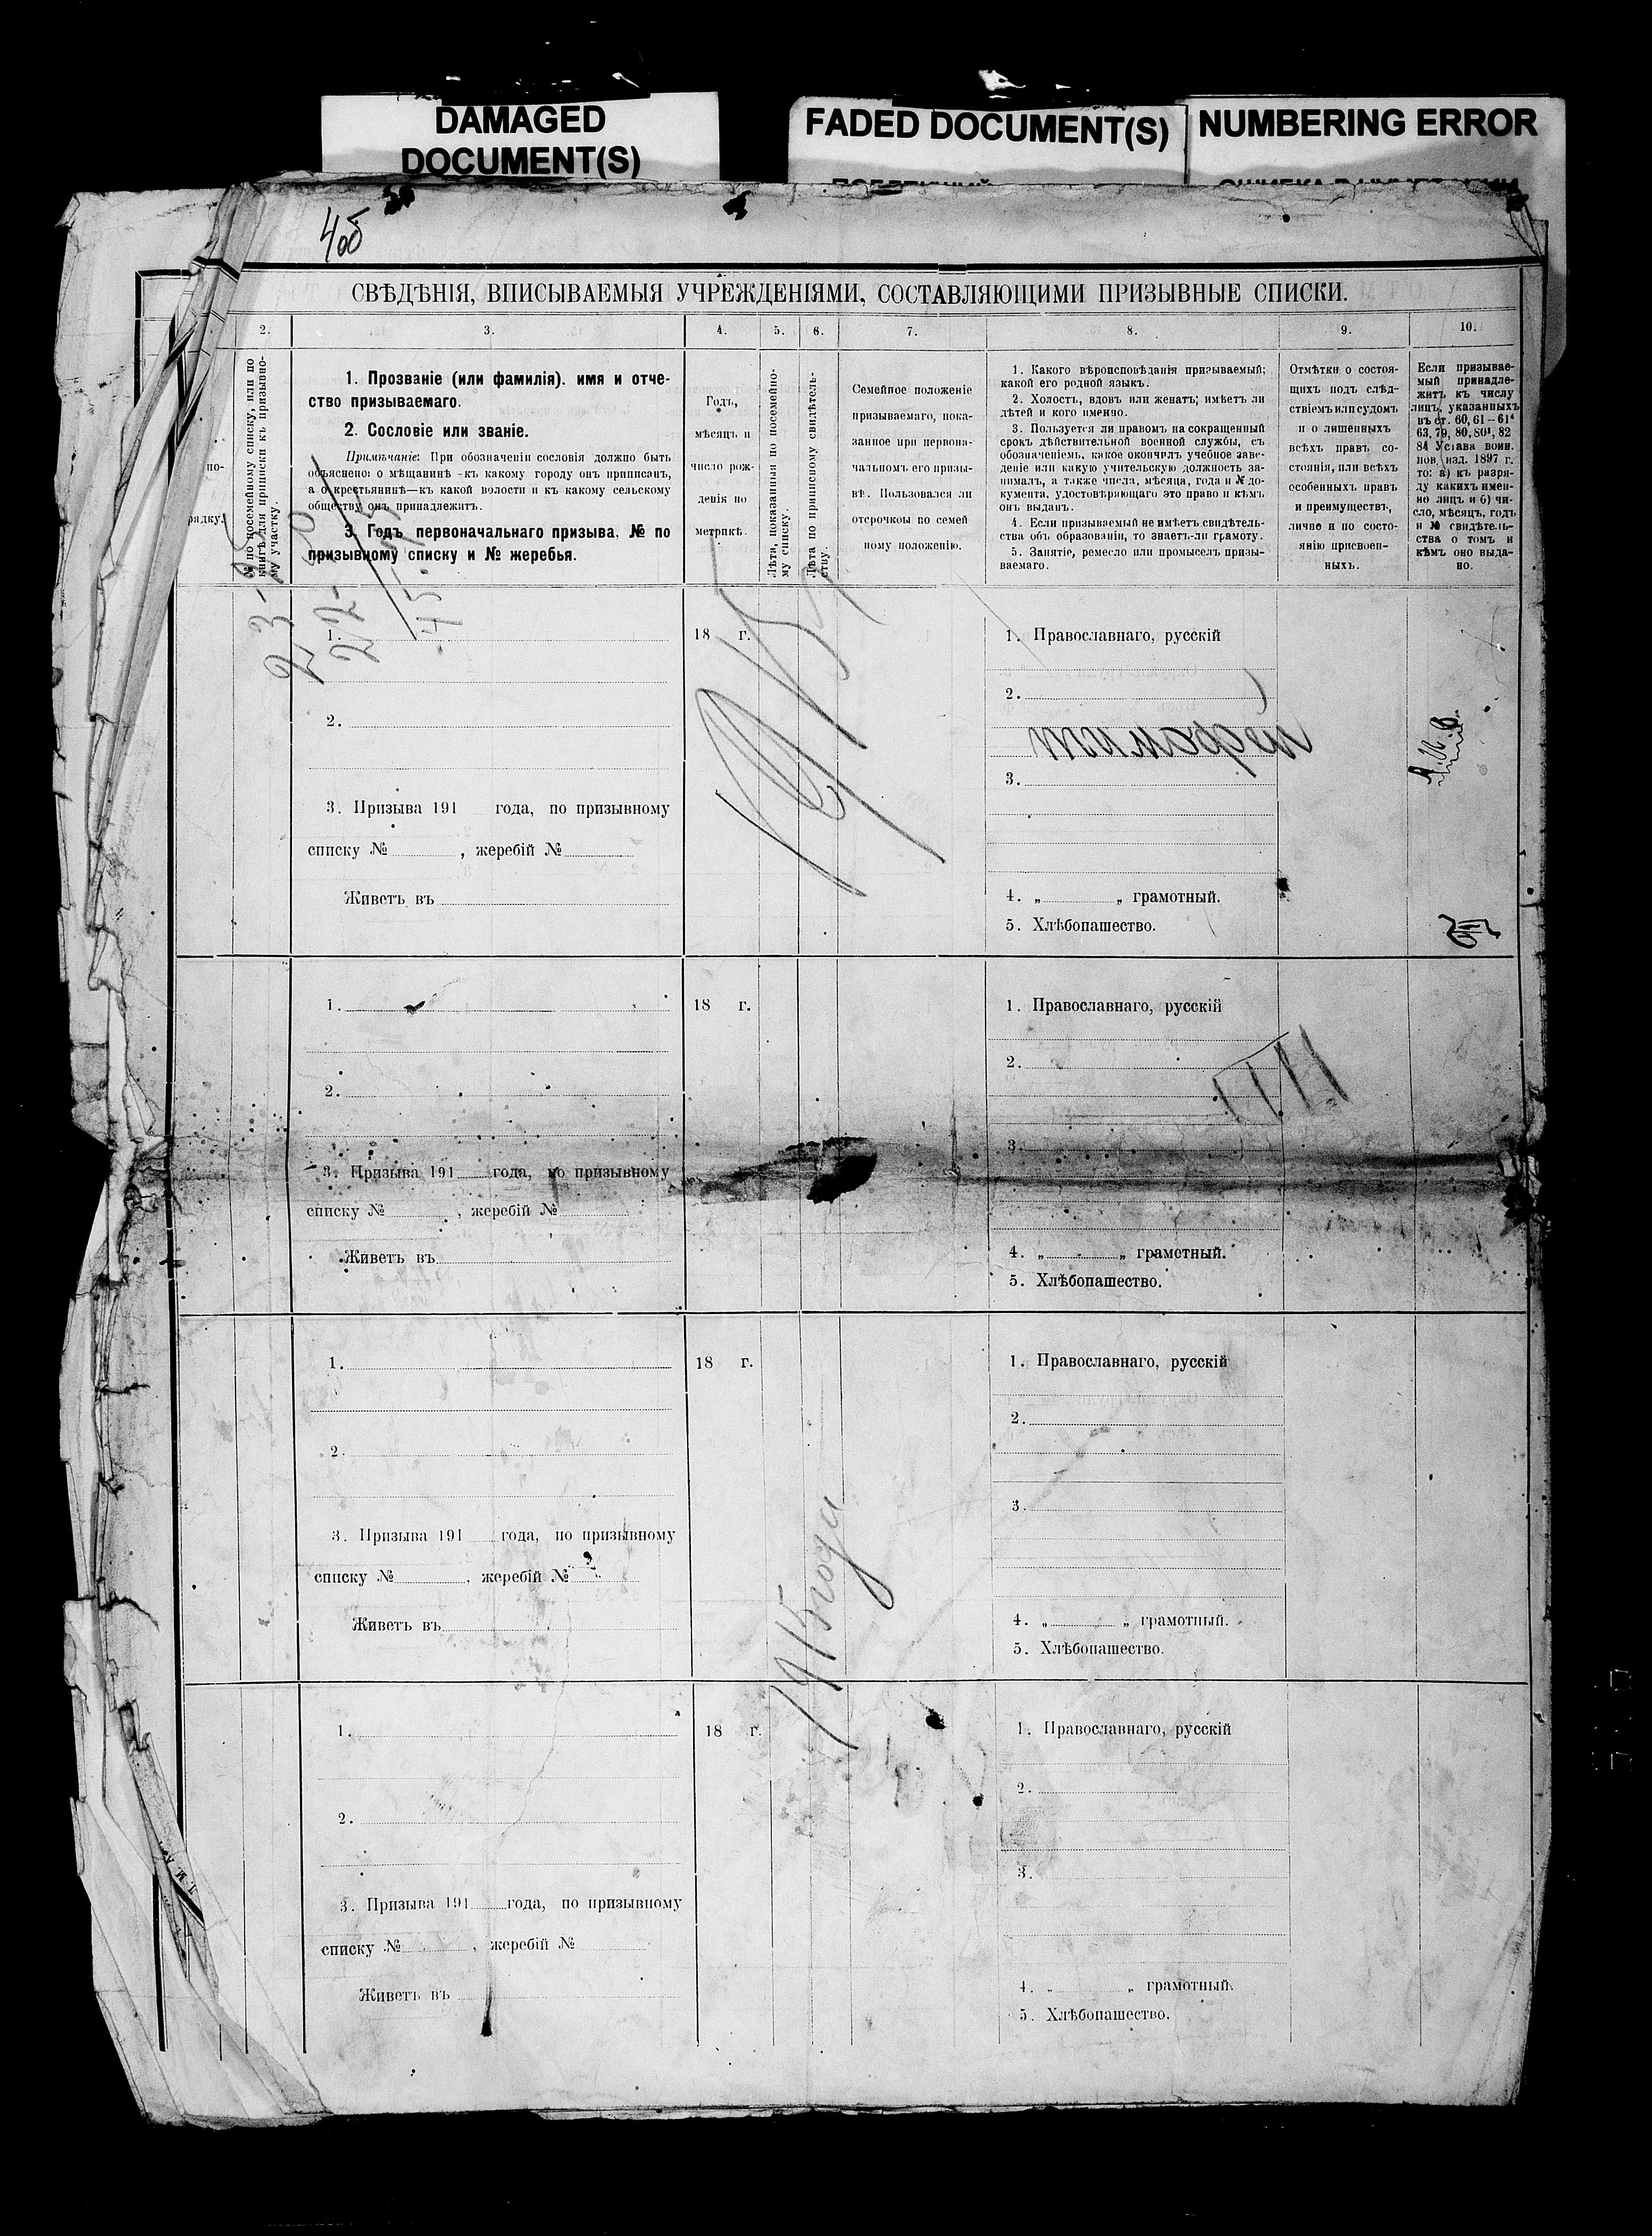 DAMAGED
DOCUMENT(S)
FADED DOCUMENT(S)
NUMBERING ERROR
4об
СВѢДѢНІЯ, ВПИСЫВАЕМЫЯ УЧРЕЖДЕНІЯМИ, СОСТАВЛЯЮЩИМИ ПРИЗЫВНЫЕ СПИСКИ.
2. 3. 4. 5. 6. 7. 8. 9. 10.
по-
рядку.
№ по посемейному списку, или по
книгѣ для приписки къ призывно-
му участку.
1. Прозваніе (или фамилія). имя и отче-
ство призываемаго.
2. Сословіе или званіе.
Примѣчаніе: При обозначеніи сословія должно быть
объяснено: о мѣщанинѣ - къ какому городу онъ приписанъ,
а о крестьянинѣ—къ какой волости и къ какому сельскому
обществу онъ принадлежитъ.
3. Годъ первоначальнаго призыва, № по
призывному списку и № жеребья.
Годъ,
мѣсяцъ и
число рож-
денія по
метрикѣ.
Лѣта, показанныя по посемейно-
му списку.
Лѣта по приписному свидѣтель-
ству.
Семейное положеніе
призываемаго, пока-
занное при первона-
чальномъ его призы-
вѣ. Пользовался ли
отсрочкою по семей
ному положенію.
1. Какого вѣроисповѣданія призываемый;
какой его родной языкъ.
2. Холостъ, вдовъ или женатъ; имѣетъ ли
дѣтей и кого именно.
3. Пользуется ли правомъ на сокращенный
срокъ дѣйствительной военной службы, съ
обозначеніемъ, какое окончилъ учебное заве-
деніе или какую учительскую должность за-
нималъ, а также числа, мѣсяца, года и № до-
кумента, удостовѣряющаго это право и кѣмъ
онъ выданъ.
4. Если призываемый не имѣетъ свидѣтель-
ства объ образованіи, то знаетъ-ли грамоту.
5. Занятіе, ремесло или промыселъ призы-
ваемаго.
Отмѣтки о состоя-
щихъ подъ слѣд-
ствіемъ или судомъ
и о лишенныхъ
всѣхъ правъ со-
стоянія, или всѣхъ
особенныхъ правъ
и преимуществъ,
лично и по состо-
янію присвоен-
ныхъ.
Если призывае-
мый принадле-
житъ къ числу
лицъ, указанныхъ
въ ст. 60, 61—61⁴
63, 79, 80, 80¹, 82
84 Устава воин.
пов. изд. 1897 г.
то: а) къ разря-
ду какихъ имен-
но лицъ и б) чи-
сло, мѣсяцъ, годъ
и № свидѣтель-
ства о томъ и
кѣмъ оно выда-
но.
1.
18 г.
1. Православнаго, русскій
2.
2.
3.
3. Призыва 191 года, по призывному
списку № , жеребій №
Живетъ въ
4. „ „ грамотный.
5. Хлѣбопашество.
1.
18 г.
1. Православнаго, русскій
2.
2.
3.
3. Призыва 191 года, по призывному
списку № , жеребій №
Живетъ въ
4. „ „ грамотный.
5. Хлѣбопашество.
1.
18 г.
1. Православнаго, русскій
2.
2.
3.
3. Призыва 191 года, по призывному
списку № , жеребій №
Живетъ въ
4. „ „ грамотный.
5. Хлѣбопашество.
1915 года
1.
18 г.
1. Православнаго, русскій
2.
2.
3.
3. Призыва 191 года, по призывному
списку № , жеребій №
Живетъ въ
4. „ „ грамотный.
5. Хлѣбопашество.